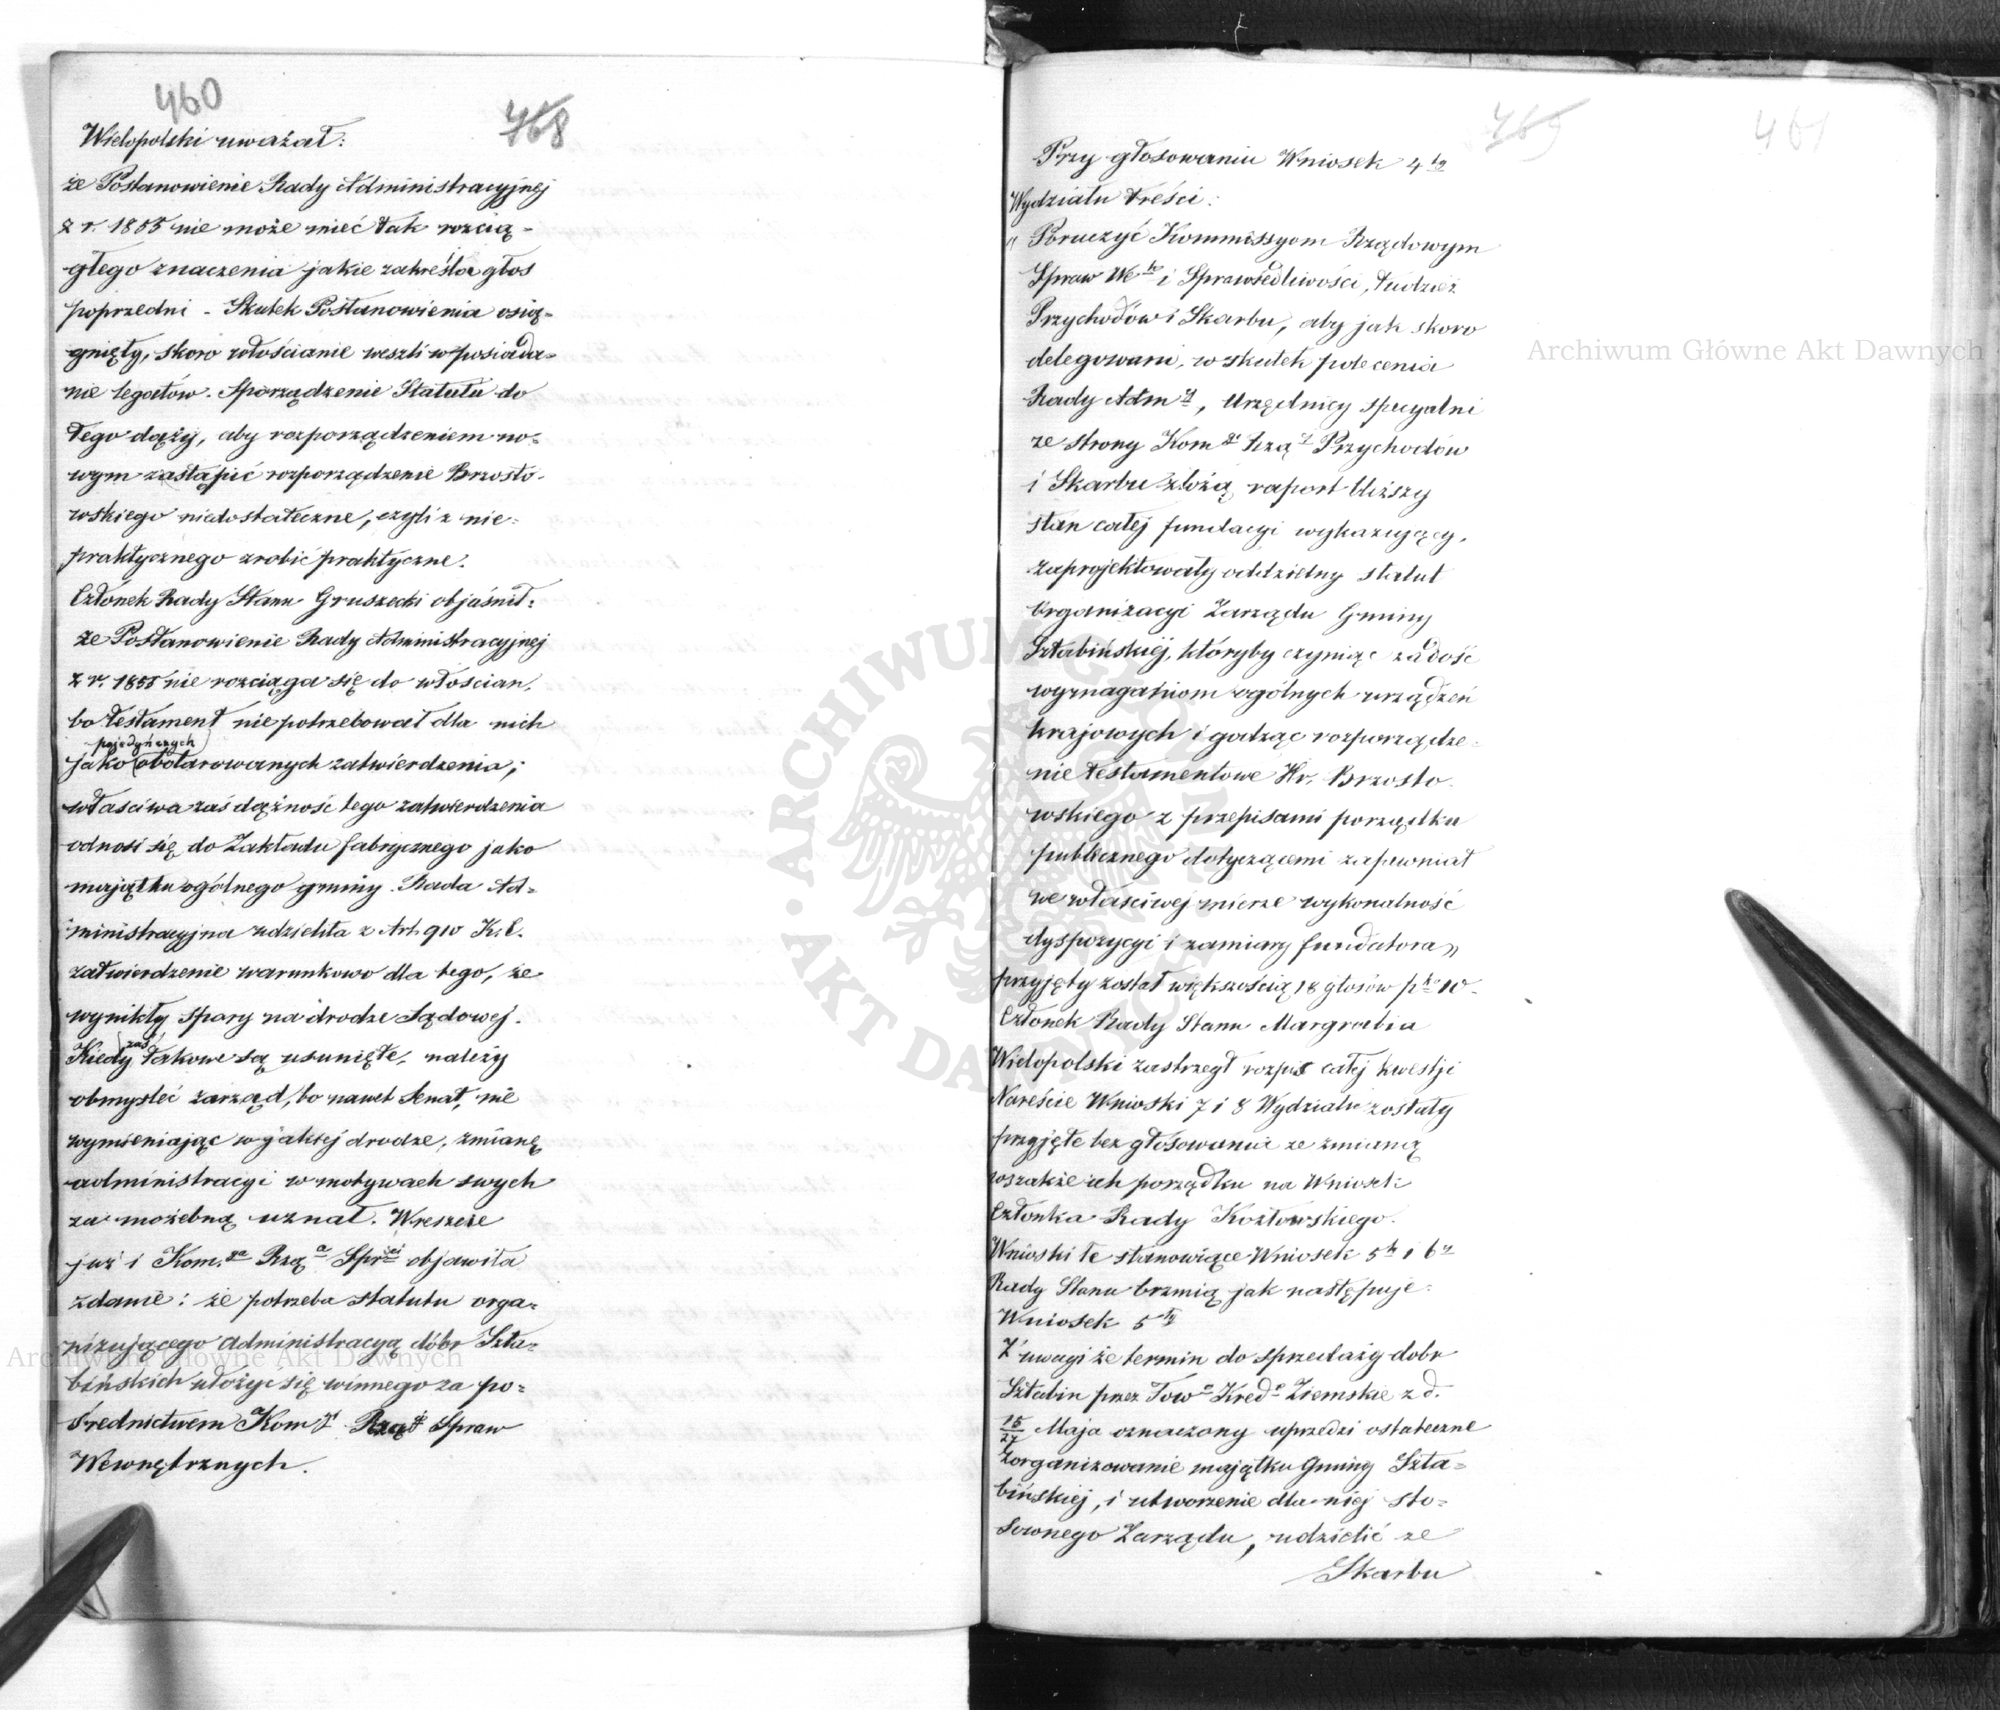 460
468
Wielopolski uważał:
że Postanowienie Rady Administracyjnej
z r. 1855 nie może mieć tak rozcią-
głego znaczenia jakie zakreśla głos
poprzedni - Skutek Postanowienia osią-
gnięty, skoro włościanie weszli w posiada-
nie legatów. Sporządzenie Statutu do
tego dąży, aby rozporządzeniem no-
wym zastąpić rozporządzenie Brzosto-
wskiego niedostateczne, czyli z nie-
praktycznego zrobić praktyczne.
Członek Rady Stanu Gruszecki objaśnił:
że Postanowienie Rady Administracyjnej
z r. 1855 nie rozciąga się do włościan,
bo testament nie potrzebował dla nich
pojedyńczych
jako obdarowanych zatwierdzenia;
właściwa zaś dążność tego zatwierdzenia
odnosi się do Zakładu fabrycznego jako
majątku ogólnego gminy. Rada Ad-
ministracyjna udzieliła z Art. 910 K.C.
zatwierdzenie warunkowo dla tego, że
wynikły spory na drodze Sądowej.
zaś
Kiedy takowe są usunięte, należy
obmysleć zarząd, bo nawet Senat, nie
wymieniając w jakiej drodze, zmianę
administracyi w motywach swych
za możebną uznał. Wreszcie
już i Kom.ya Rzą.a Spr.ci objawiła
zdanie: że potrzeba statutu orga-
nizującego administracyą dóbr Szta-
bińskich ułożyć się winnego za po-
średnictwem Kom.yi Rzą.j Spraw
Wewnętrznych.
469
461
Przy głosowaniu Wniosek 4ty
Wydziału treści:
" Poruczyć Kommissyom Rządowym
Spraw We.h i Sprawiedliwości, tudzież
Przychodów i Skarbu, aby jak skoro
delegowani, w skutek polecenia
Rady Adm.ej, Urzędnicy specyalni
ze strony Kom.yi Rzą.j Przychodów
i Skarbu złożą raport bliższy
stan całej fundacyi wykazujący,
zaprojektowały oddzielny statut
Organizacyi Zarządu Gminy
Sztabińskiej, któryby czyniąc zadość
wymaganiom ogólnych urządzeń
krajowych i godząc rozporządze-
nie testamentowe Hr. Brzosto-
wskiego z przepisami porządku
publicznego dotyczącemi zapewniał
we właściwej mierze wykonalność
dyspozycyi i zamiary fundatora"
przyjęty został większością 18 głosów p.ko 10.
Członek Rady Stanu Margrabia
Wielopolski zastrzegł rozpis całej kwestji
Nareście Wnioski 7 i 8 Wydziału zostały
przyjęte bez głosowania ze zmianą
wszakże ich porządku na Wniosek
Członka Rady Kozłowskiego.
Wnioski te stanowiące Wniosek 5ty i 6ty
Rady Stanu brzmią jak następuje:
Wniosek 5ty
Z uwagi że termin do sprzedaży dobr
Sztabin przez Tow.o Kred.e Ziemskie z d.
15/27 Maja oznaczony uprzedzi ostateczne
Zorganizowanie majątku Gminy Szta-
bińskiej, i utworzenie dla niej sto-
sownego Zarządu, udzielić ze
Skarbu
Archiwum Główne Akt Dawnych
Archiwum Główne Akt Dawnych
ARCHIWUM GŁÓWNE AKT DAWNYCH